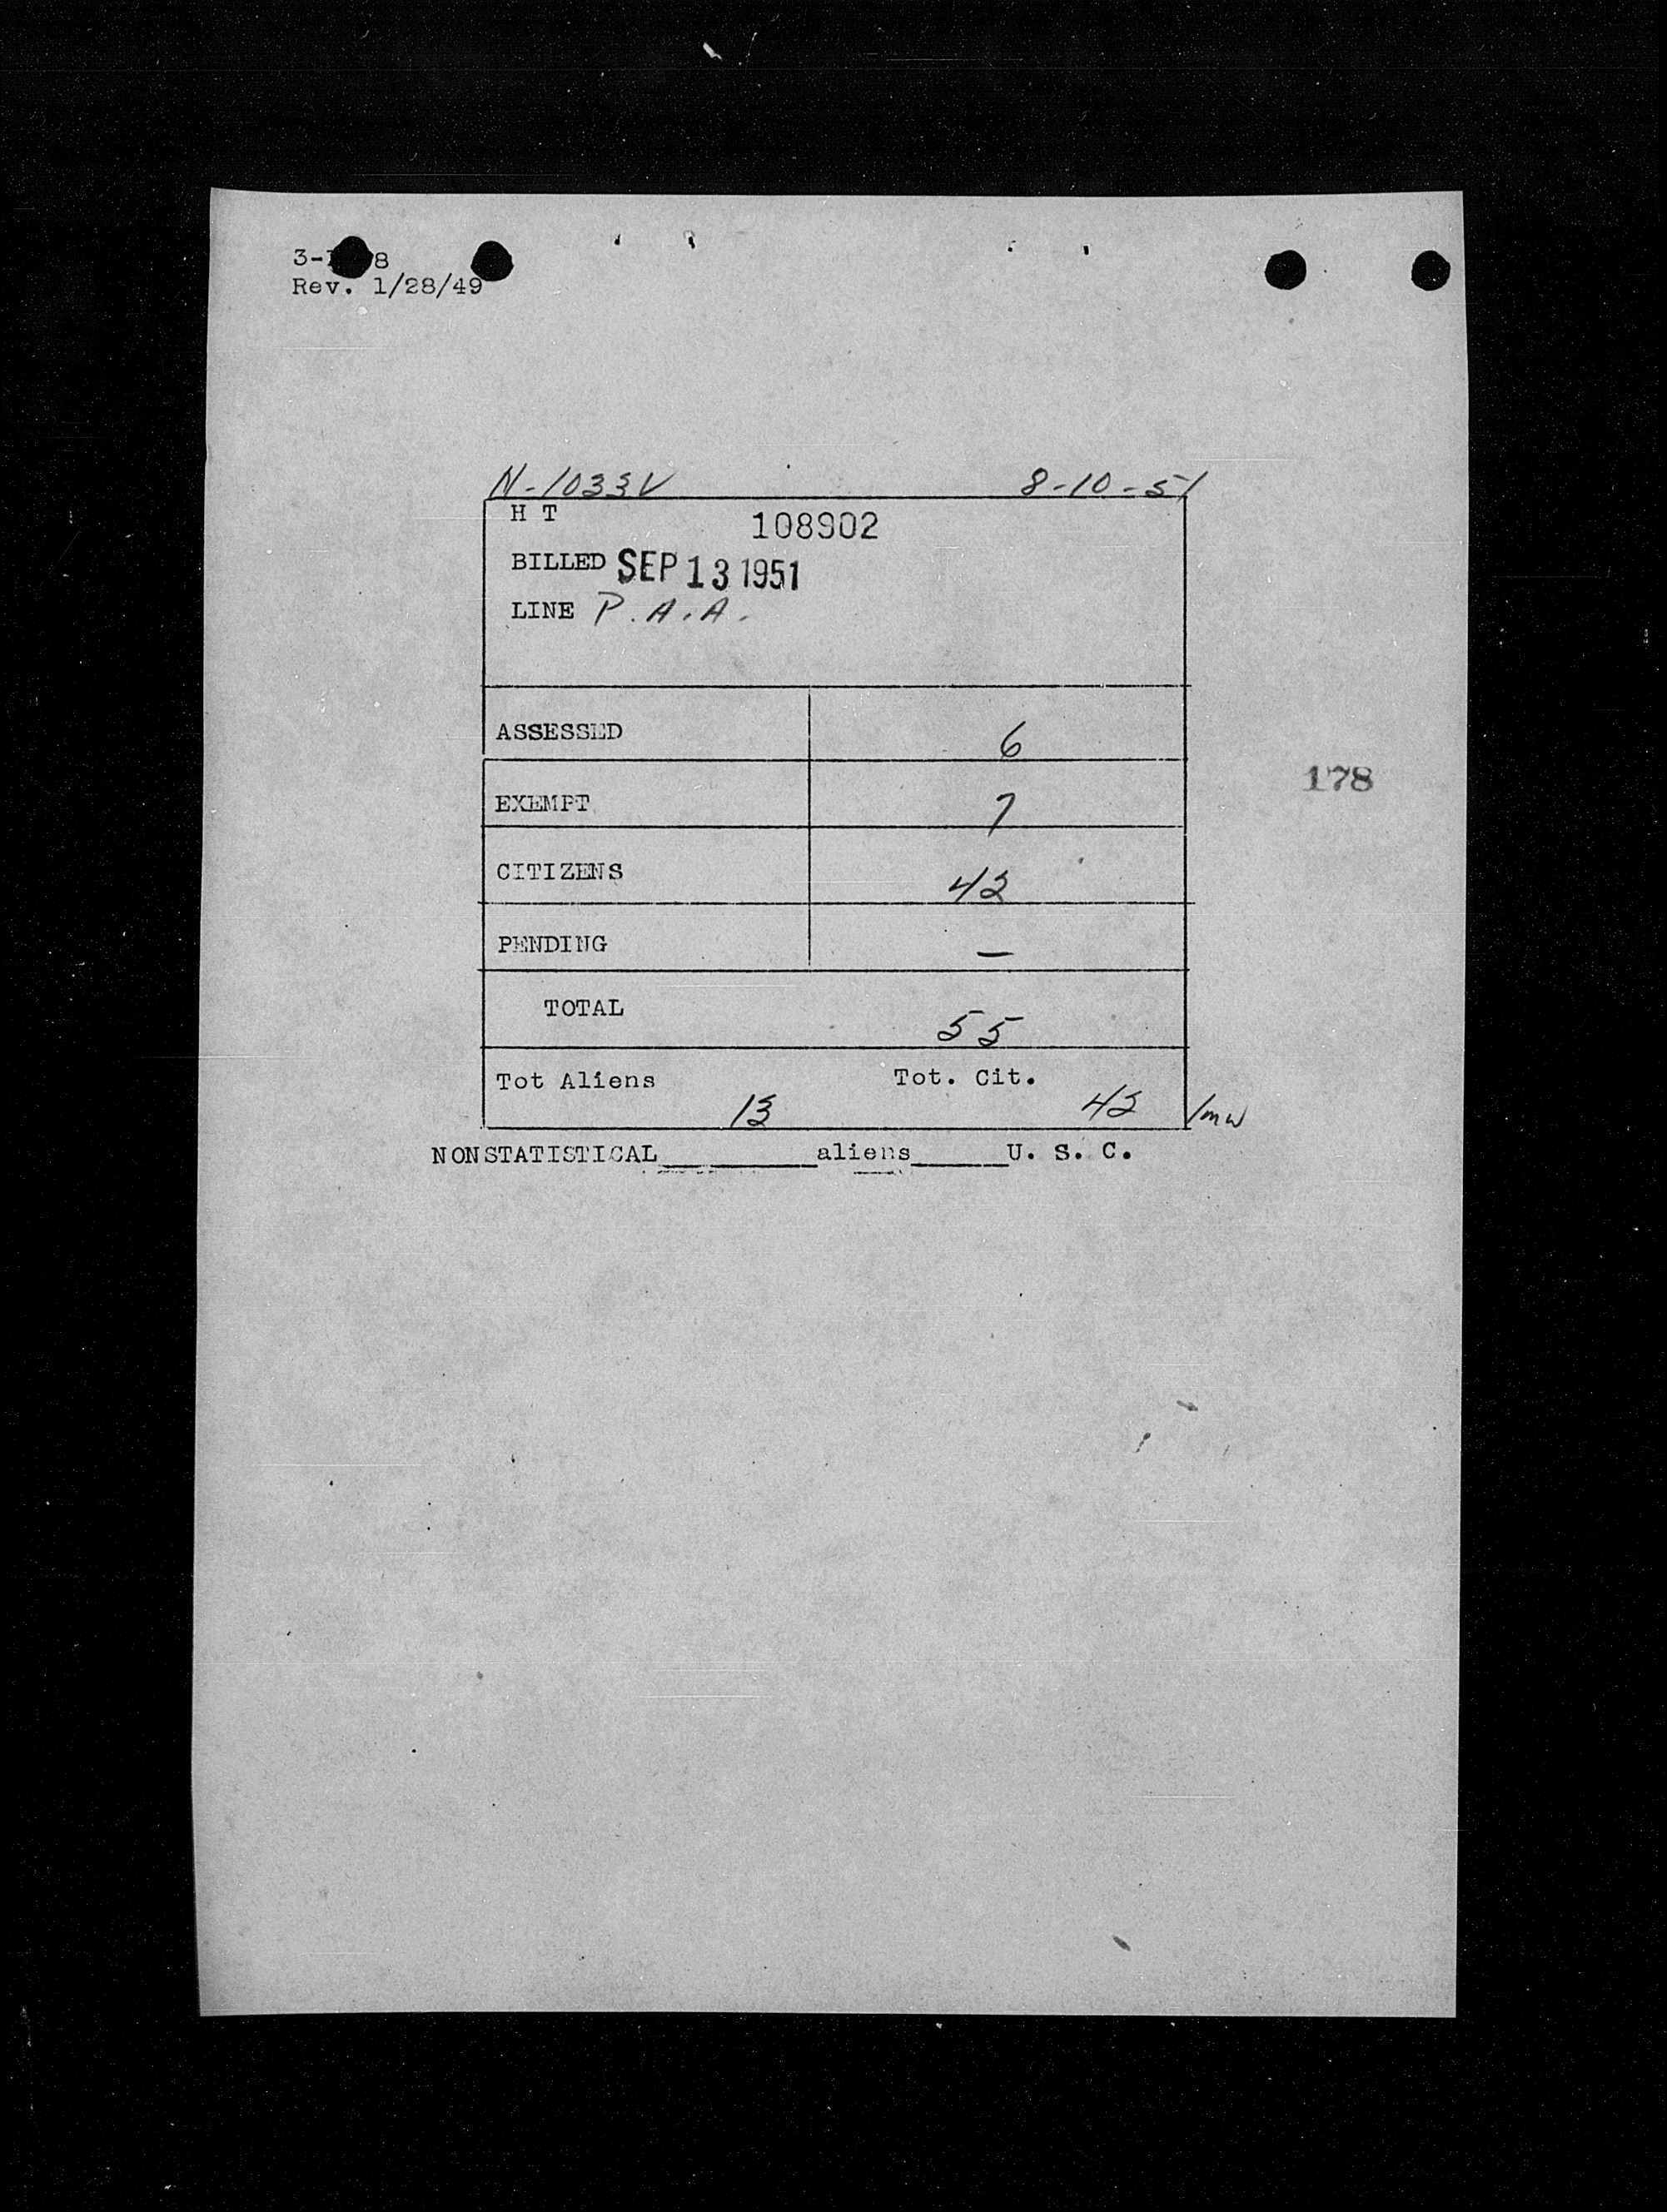 3- 8
Rev. 1/28/49
N-1033V 8-10-51
H T 108902
BILLED SEP 13 1951
LINE P.A.A.
ASSESSED 6
178
EXEMPT 7
CITIZENS 42
PENDING —
TOTAL 55
Tot Aliens Tot. Cit.
13 42 /mw
NONSTATISTICAL________aliens_____U. S. C.